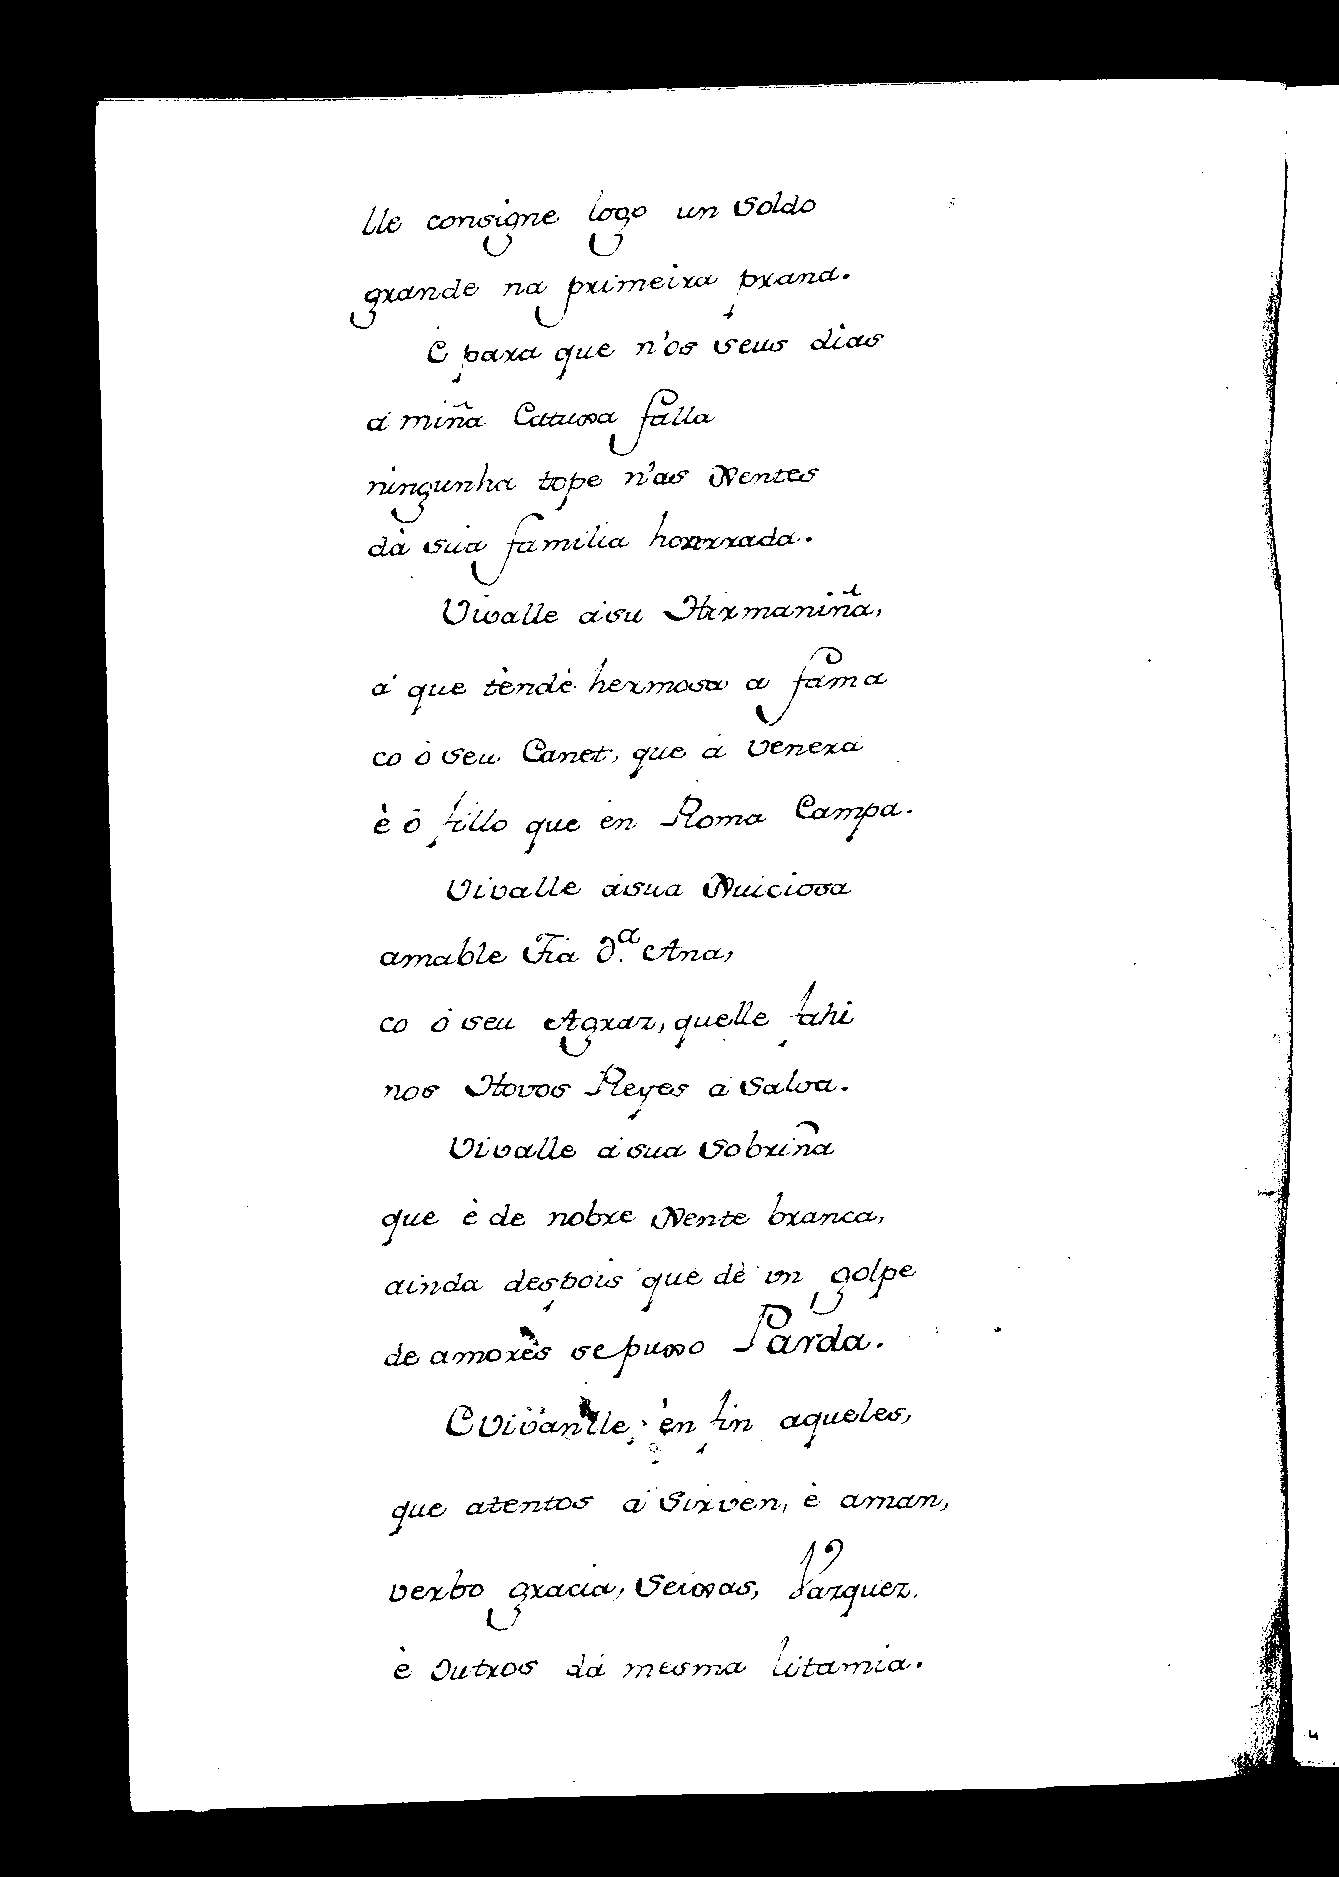 lle consigne logo un Soldo
grande na primeira prana.
E para que n'os seus dias
á miña Catuxa falla
ningunha tope n'as Xentes
dà sùa familia honrrada.
Vivalle á su Hirmaniña,
á que tèndè hermosa a fama
co ò seu Canet, que á venera
è ò fillo que en Roma Campa.
Vivalle ásua Xuiciosa
amable Tia D.ª Ana,
co ó seu Agraz, quelle fahi
nos Novos Reyes á Salva.
Vivalle á sua Sobriña
que è de nobre Xente branca,
ainda despois que dè un golpe
de amorès se puxo Parda.
E Vivanlle èn fin aqueles,
que atentos á Sirven, è aman,
verbo gracia, Seixas, Vazquez.
è Outros dá mesma litamia.